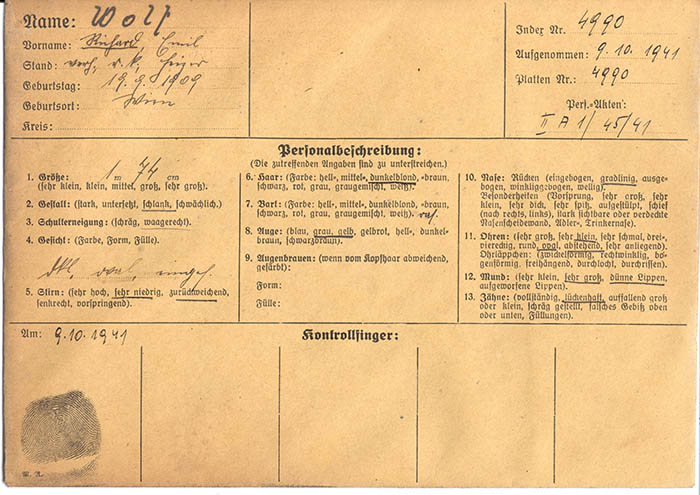 Name: Wolf
Vorname: Richard, Emil
Stand: verh. r.k.
Geburtstag: 19.9.1909
Geburtsort: Wien
Kreis:
Index Nr. 4990
Aufgenommen: 9.10.1941
Platten Nr.: 4990
Pers.-Akten:
II A 1/45/41
Personalbeschreibung:
(Die zutreffenden Angaben sind zu unterstreichen.)
1. Größe: 1 m 74 cm
(sehr klein, klein, mittel, groß, sehr groß).
2. Gestalt: (stark, untersetzt, schlank, schwächlich).
3. Schulterneigung: (schräg, waagerecht).
4. Gesicht: (Farbe, Form, Fülle).
dkl, oval, eingef.
5. Stirn: (sehr hoch, sehr niedrig, zurückweichend,
senkrecht, vorspringend).
6. Haar: (Farbe: hell-, mittel-, dunkelblond, -braun,
schwarz, rot, grau, graugemischt, weiß).
7. Bart: (Farbe: hell-, mittel-, dunkelblond, -braun,
schwarz, rot, grau, graugemischt, weiß). ras.
8. Auge: (blau, grau, gelb, gelbrot, hell-, dunkel-
braun, schwarzbraun).
9. Augenbrauen: (wenn vom Kopfhaar abweichend,
gefärbt):
Form:
Fülle:
10. Nase: Rücken (eingebogen, gradlinig, ausge-
bogen, winkliggebogen, wellig).
Besonderheiten (Vorsprung, sehr groß, sehr
klein, sehr dick, sehr spitz, aufgestülpt, schief
(nach rechts, links), stark sichtbare oder verdeckte
Nasenscheidewand, Adler-, Trinkernase).
11. Ohren: (sehr groß, sehr klein, sehr schmal, drei-,
viereckig, rund, oval, abstehend, sehr anliegend).
Ohrläppchen: (zwickelförmig, rechtwinklig, bo-
genförmig, freihängend, durchlocht, durchrissen).
12. Mund: (sehr klein, sehr groß, dünne Lippen,
aufgeworfene Lippen).
13. Zähne: (vollständig, lückenhaft, auffallend groß
oder klein, schräg gestellt, falsches Gebiß oben
oder unten, Füllungen).
Am: 9.10.1941
Kontrollfinger: